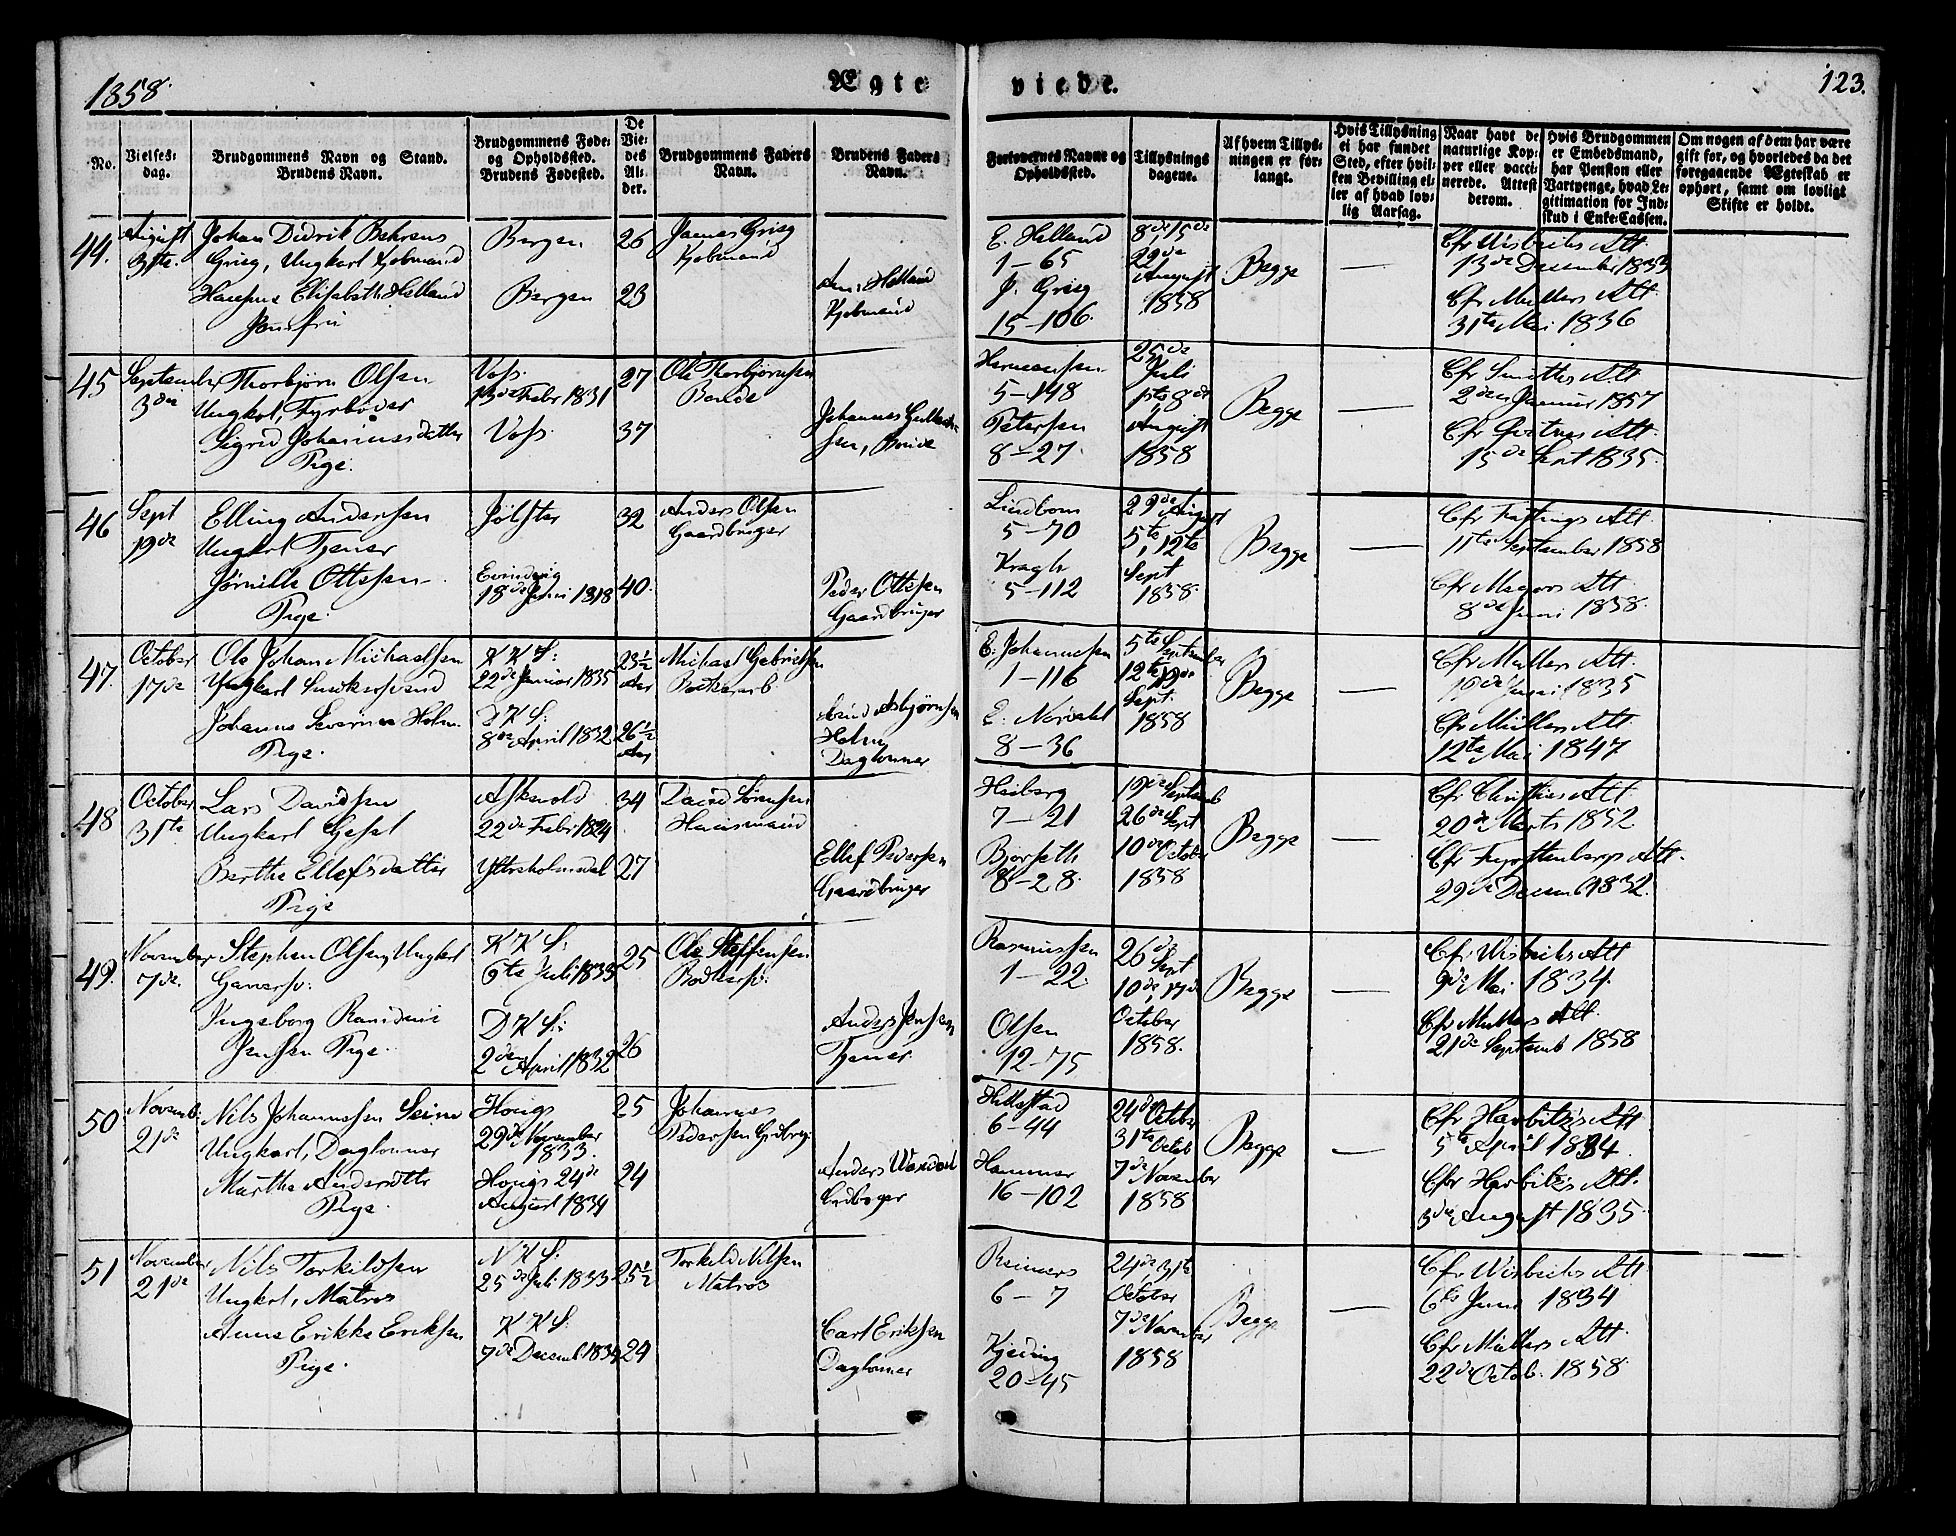 1858.
Ægteviede.
123.
No.
Vielses-
dag.
Brudgommens Navn og Stand.
Brudens Navn.
Brudgommens Føde-
og Opholdssted.
Brudens Fødested.
De
Vie-
des
Al-
der.
Brudgommens Faders
Navn.
Brudens Faders
Navn.
Forlovernes Navne og
Opholdssted.
Tillysnings
dagene.
Af hvem Tillys-
ningen er for-
langt.
Hvis Tillysning
ei har fundet
Sted, efter hvil-
ken Bevilling el-
ler af hvad lov-
lig Aarsag.
Naar havt de
naturlige Kop-
per eller vacci-
nerede. Attest
derom.
Hvis Brudgommen
er Embedsmand,
har Pension eller
Vartpenge, hvad Le-
gitimation for Ind-
skud i Enke-Cassen.
Om nogen af dem har være
gift for, og hvorledes da det
foregaaende Ægteskab er
ophørt, samt om lovligt
Skifte er holdt.
44.
August
31te.
Johan Didrik Behrens
Grieg, Ungkarl Kjøbmand
Elisabeth Helland
Jomfru
Bergen
Bergen
26
23
James Grieg
Kjøbmand
Helland
Kjøbmand
E. Helland
1–65
J. Grieg
15–106.
8de, 15de
22de
August
1858
Begge
—
Cfr Wisbechs Att
13de December 1833
Cfr Mullers Att.
31te Mai 1836
45
September
3die
Thorbjørn Olsen
Ungkarl, Fyrbøder
Sigrid Johannesdatter
Pige.
Voss.
13de Febr 1831
Voss.
27
37
Ole Thorbjørnsen
Bonde
Johannes
sen, Bonde
Hermansen
5–148
Petersen
8–27.
25de
Juli
1ste 8de
August
1858
Begge
—
Cfr Smiths Att
2den Januar 1857
Cfr Att.
15de Sept 1835.
46
Sept
19de
Elling Andersen
Ungkarl Tjener
Ottesen
Pige.
Jølster
Evindvig
18de 1818
32
40.
Anders Olsen
Gaardbruger
Peder Ottesen
Gaardbruger
Lindbom
5–70
Kragh
5–112
29de August
5te, 12te
Sept
1858.
Begge
—
Cfr Att.
11te September 1858
Cfr Att
8de Juni 1858.
47.
October
17de
Ole Johan Michaelsen
Ungkarl
Johanne Severine Holm
Pige.
K K S:
22de Januar 1835
D K S:
8de April 1832
23½
Aar
26½
Aar
Michael Gabrielsen
Asbjørnsen
Holm
Daglønner
E. Johannesen
1–116
E. Nordahl
8–36
5te September
12te 19de
Sept:
1858
Begge
—
Cfr Mullers Att.
1835
Cfr Müllers Att
12te Mai 1847
48
October
31te
Lars Davidsen
Ungkarl Gesel
Berthe Ellefsdatter
Pige
Askevold
22de Febr 1824
Yttreholmedal
34
27
David Sørensen
Huusmand
Ellef Pedersen
Gaardbruger
Heiberg
7–21
Bjorseth
8–28.
19de Septemb
26de Sept
10de October
1858
Begge
—
Cfr Christies Att
20de Marts 1832
Cfr Att.
29de Decemb 1832.
49.
November
7de.
Stephen Olsen, Ungkarl
Ingeborg Randine
Jensen Pige.
K K S:
6te Juli 1833
D K S:
2den April 1832
25
26
Ole Steffensen
Bødkersv:
Anders Jensen
Tjener
Rasmussen
1–22.
Olsen
12–75
26de
Sept
10de, 17de
October
1858.
Begge
—
Cfr Wisbechs Att
9de Mai 1834.
Cfr Mullers Att.
21de Septemb 1858
50
Novemb:
21de
Nils Johannesen Seim
Ungkarl, Daglønner
Marthe Andersdtr
Pige.
Hougs
29de November
1833.
Hougs 24de
August 1834
25
24
Johannes
Pedersen Grdbrg:
Anders
Hillestad
6–44
Hammer
16–102
24de October
31te Octob
7de November
1858
Begge
—
Cfr Harbitz's Att
5te April 1834.
Cfr Harbitz's Att.
3die August 1835.
51
November
21de
Nils Torkildsen
Ungkarl, Matros
Anne Erikke Eriksen
Pige.
N K S:
25de Juli 1833
K K S:
7de Decemb 1834
25½
24
Torkild Nilsen
Matros
Carl Eriksen
Daglønner
Reimers
6–7
Kjeding
20–45
24de 31te
October
7de November
1858
Begge
—
Cfr Wisbechs Att
6te Juni 1834
Cfr Müllers Att.
22de Octob. 1858